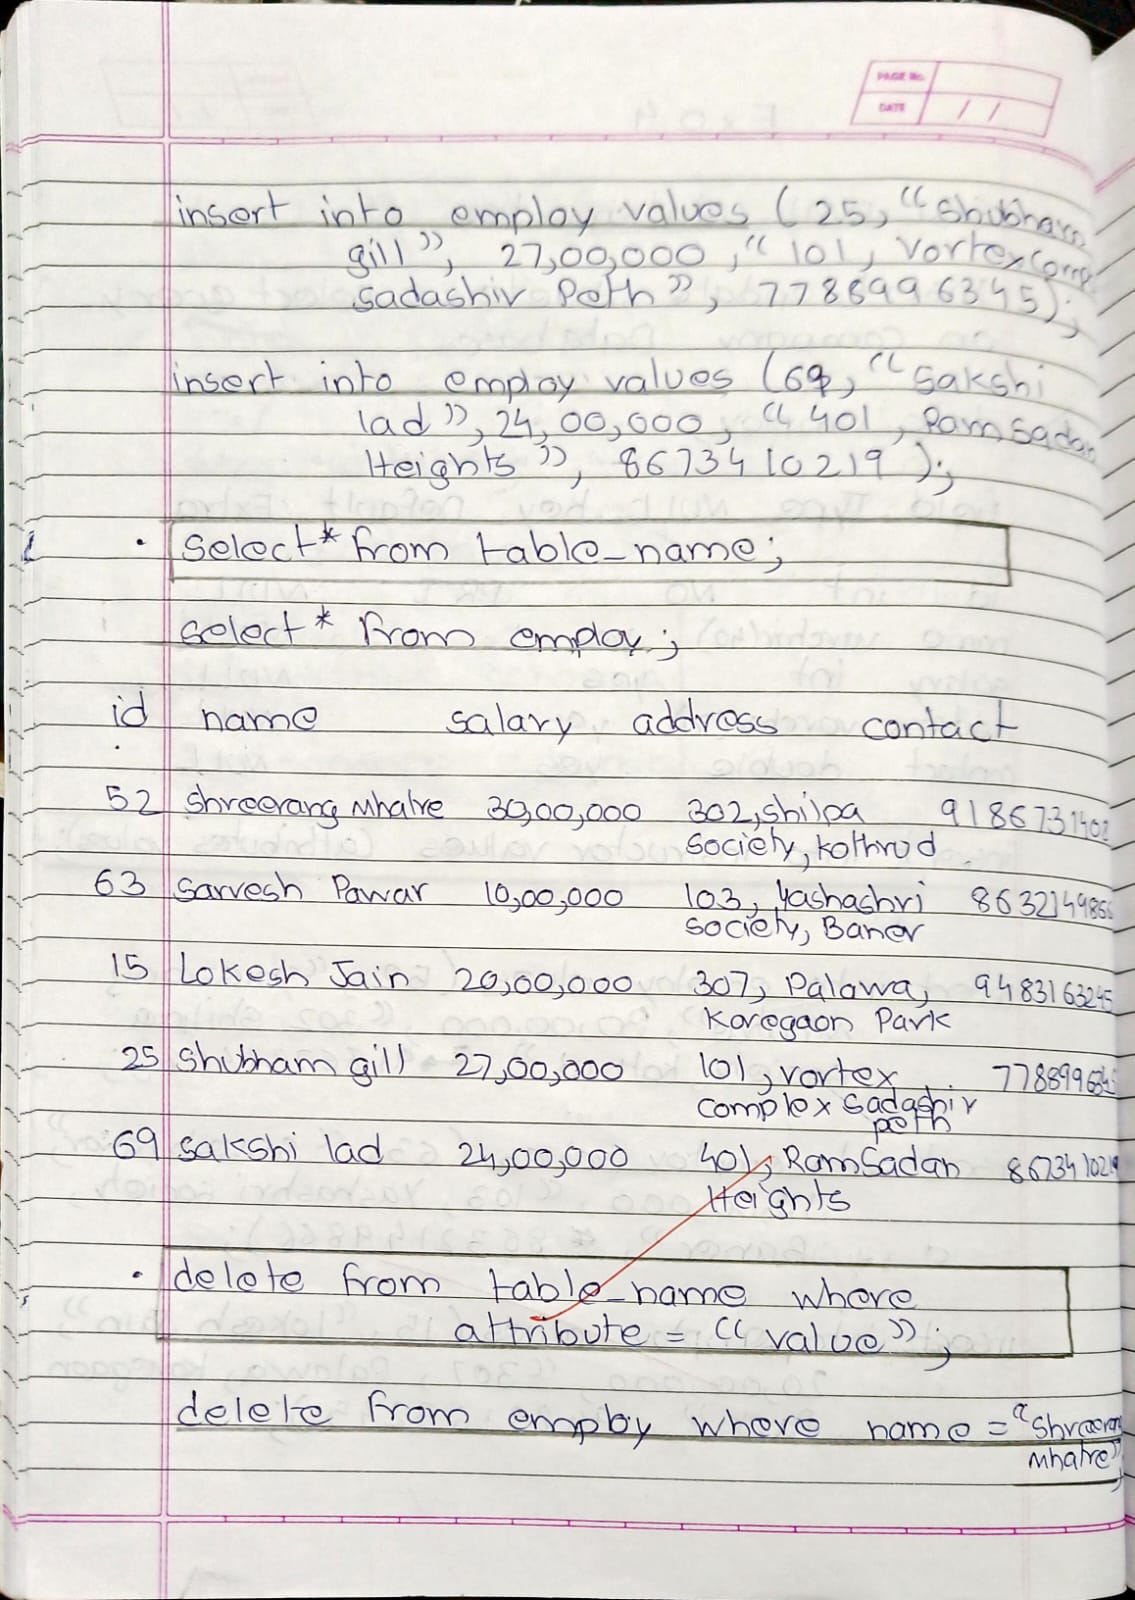 PAGE No.
DATE / /
insert into employ values (25, “shubham
gill”, 27,00,000, “101, vortex comp
sadashiv Peth”, 7788996345);
insert into employ values (69, “sakshi
lad”, 24,00,000, “401, RamSadan
Heights”, 8673410219);
• select* from table_name;
select* from employ;
id name salary address contact
52 shreerang Mhatre 30,00,000 302, shilpa
society, kothrud
63 sarvesh Pawar 10,00,000 103, Yashashri
society, Baner
15 Lokesh Jain 20,00,000 307, Palawa, 9483163245
Koregaon Park
25 shubham gill 27,00,000 101, vortex
complex sadashiv
peth
69 sakshi lad 24,00,000 401, RamSadan 8673410219
Heights
• delete from table_name where
attribute = “value”;
delete from employ where name = “Shreerang
Mhatre”;